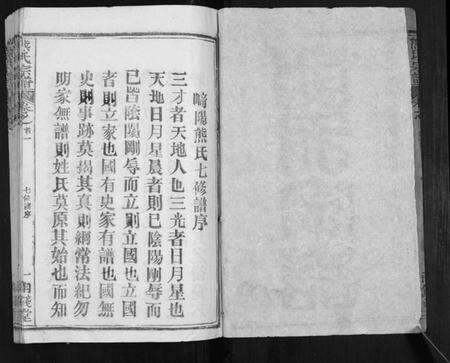 崎陽熊氏七修譜序
三才者天地人也三光者日月星也
天地日月星晨者則已陰陽剛辱而
已皆陰陽剛辱而立則立國也立國
者則立家也國有史家有譜也國無
史則事跡莫揭其真則綱常法紀勿
明家無譜則姓氏莫原其始也而知
熊氏宗譜
卷之首一
七修譜序
一